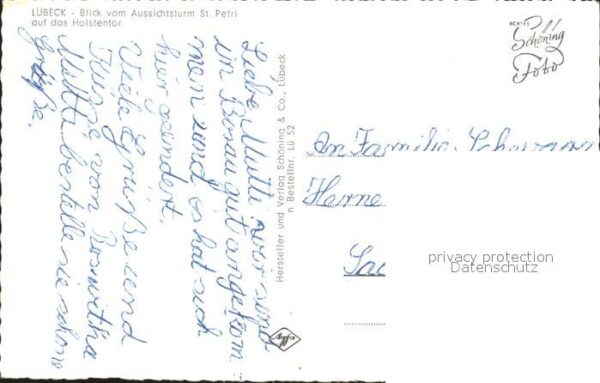 LÜBECK - Blick vom Aussichtsturm St. Petri
auf das Holstentor
Liebe Mutti, wir sind
in Bosau gut angekom-
men und es hat sich
hier geändert.
Viele Grüße und
Küsse von Roswitha
Mutti bestelle sie schöne
Grüße.
Hersteller und Verlag Schöning & Co., Lübeck
n Bestellnr. Lü 52
Agfa
ECHTES
Schöning
Foto
An Familie
Herne
privacy protection
Datenschutz